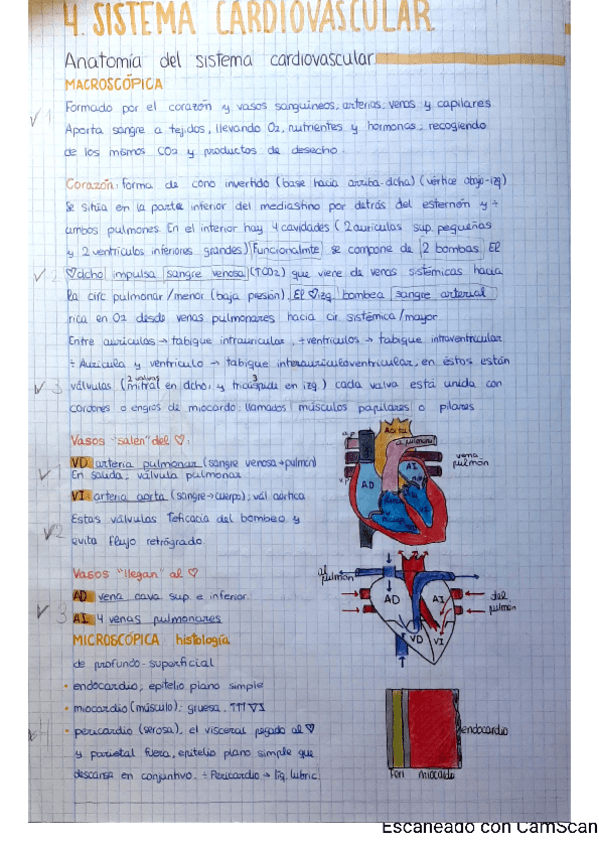 4. SISTEMA CARDIOVASCULAR
Anatomía del sistema cardiovascular
MACROSCÓPICA
Formado por el corazón y vasos sanguíneos, arterias, venas y capilares
Aporta sangre a tejidos, llevando O2, nutrientes y hormonas; recogiendo
de los mismos CO2 y productos de desecho.
Corazón: forma de cono invertido (base hacia arriba-dcha) (vértice abajo-izq)
Se sitúa en la parte inferior del mediastino por detrás del esternón y ÷
ambos pulmones. En el interior hay 4 cavidades (2 aurículas sup. pequeñas
y 2 ventrículos inferiores grandes) Funcionalmte se compone de 2 bombas El
♡dcho impulsa sangre venosa (↑CO2) que viene de venas sistémicas hacia
la circ pulmonar/menor (baja presión). El ♡izq. bombea sangre arterial
rica en O2 desde venas pulmonares hacia cir. sistémica/mayor
Entre aurículas → tabique intrauricular, ÷ ventrículos → tabique intraventricular
÷ Aurícula y ventrículo → tabique interauriculoventricular, en éstos están
2 valvas 3
válvulas (mitral en dcho; y tricúspide en izq) cada valva está unida con
cordones o engros de miocardo llamados músculos papilares o pilares
Vasos "salen" del ♡:
VD arteria pulmonar (sangre venosa → pulmón)
En salida; válvula pulmonar
VI arteria aorta (sangre → cuerpo); vál aórtica
Estas válvulas ↑eficacia del bombeo y
evita flujo retrógrado.
Aorta
a. pulmonar
vena
pulmón
AD
AI
Vasos "llegan" al ♡
AD vena cava sup e inferior
AI 4 venas pulmonares
al
pulmón
AD
AI
del
pulmón
VD
VI
MICROSCÓPICA histología
de profundo-superficial
• endocardio; epitelio plano simple
• miocardio (músculo); gruesa, ↑↑↑ VI
• pericardio (serosa), el visceral pegado al ♡
y parietal fuera, epitelio plano simple que
descansa en conjuntivo. ÷ Pericardio → líq. lubric.
endocardio
Peri miocardio
Escaneado con CamScan